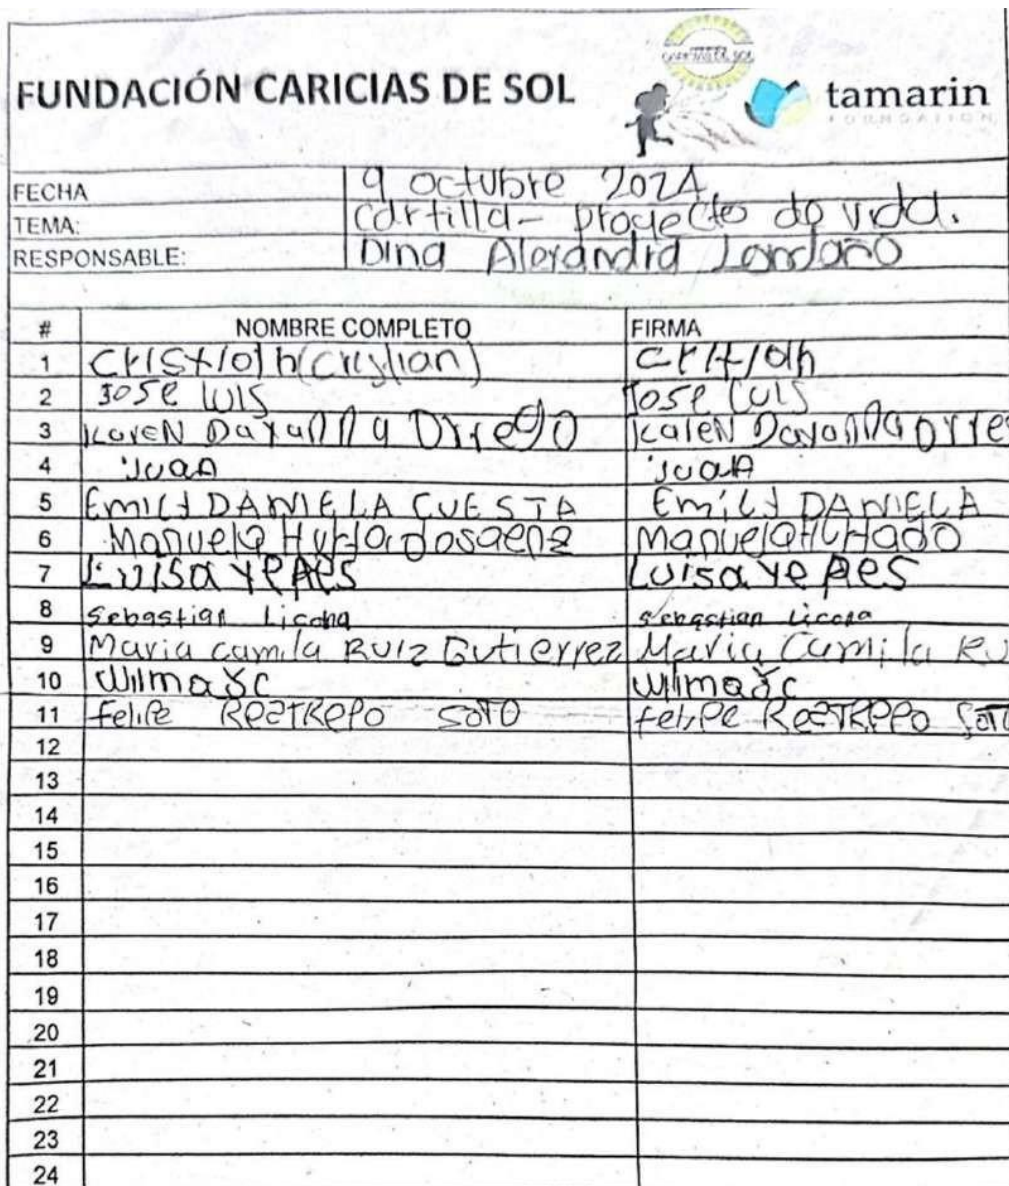 FUNDACIÓN CARICIAS DE SOL
tamarin
FOUNDATION
FECHA 9 octubre 2024
TEMA: cartilla - proyecto do vida.
RESPONSABLE: Dina Alexandra Londoño
# NOMBRE COMPLETO FIRMA
1 (Cristian)
2 Jose LUIS Jose LUIS
3 KareN Dayanna Orrego KareN Dayanna Orre
4 JuaN JuaN
5 EmiLy DANIELA CUESTA EmiLy DANIELA
6 Manuela Hurtado saenz Manuela Hurtado
7 Luisa Yepes Luisa Yepes
8 Sebastian Licona Sebastian Licona
9 Maria camila RUIZ Gutierrez Maria Camila RU
10
11 Felipe RestRepo SOTO Felipe RestRepo SOTO
12
13
14
15
16
17
18
19
20
21
22
23
24